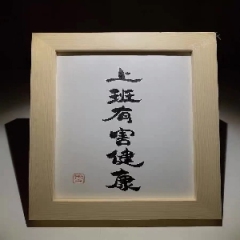 上班有害健康